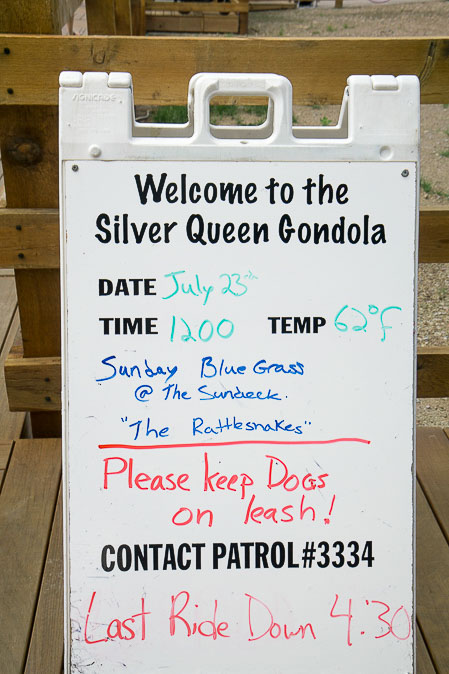 Welcome to the
Silver Queen Gondola
DATE July 23rd
TIME 1200 TEMP 62°F
Sunday Blue Grass
@ The Sundeck.
"The Rattlesnakes"
Please keep Dogs
on leash!
CONTACT PATROL#3334
Last Ride Down 4:30